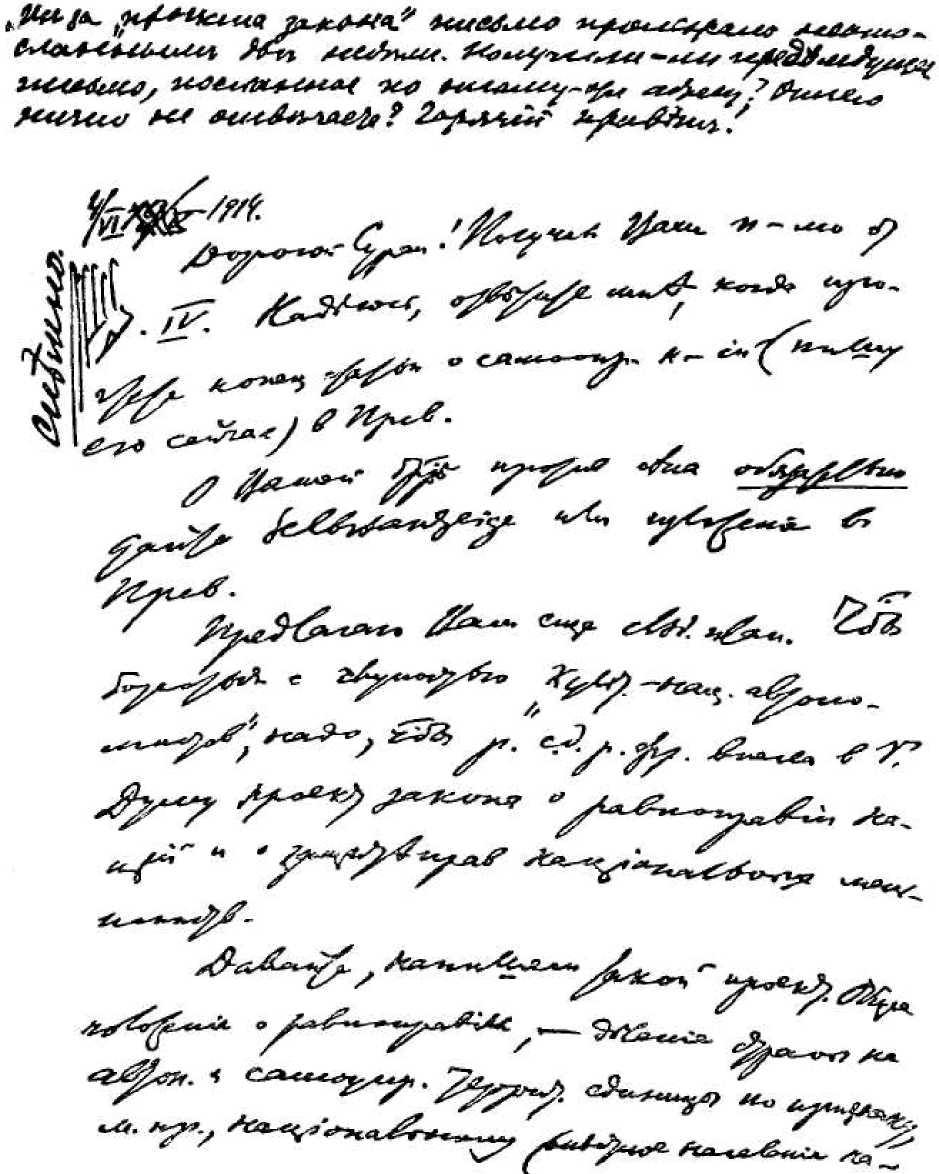 Из за „проекта закона“ письмо пролежало неото-
сланнымъ двѣ недѣли. Получили-ли предыдущее
письмо, посланное по этому-же адресу? Отчего
ничего не отвѣчаете? Горячій привѣтъ!
4/VI 1914.
Спѣшно.
Дорогой Сурен! Получил Ваше п-мо от
IV. Надѣюсь, отвѣтите мнѣ, когда про-
чтете конец статьи о самоопр. н-ій (пишу
его сейчас) в Просв.
О Вашей бр-рѣ против Ана обязательно
дайте Selbstanzeige или изложенія в
Просв.
Предлагаю Вам еще слѣд. план. Чтобы
бороться с глупостью „культ.-нац. автоно-
мистов“, надо, чтобы р. с.д. р. фр. внесла в Г.
Думу проект закона о равноправіи на-
цій и о защитѣ прав національных мень-
шинств.
Давайте, напишем такой проект. Общее
положенія о равноправіи, — дѣленіе страны на
автон. и самоупр. террит. единицы по признаку,
м. пр., національному (мѣстное населеніе на-